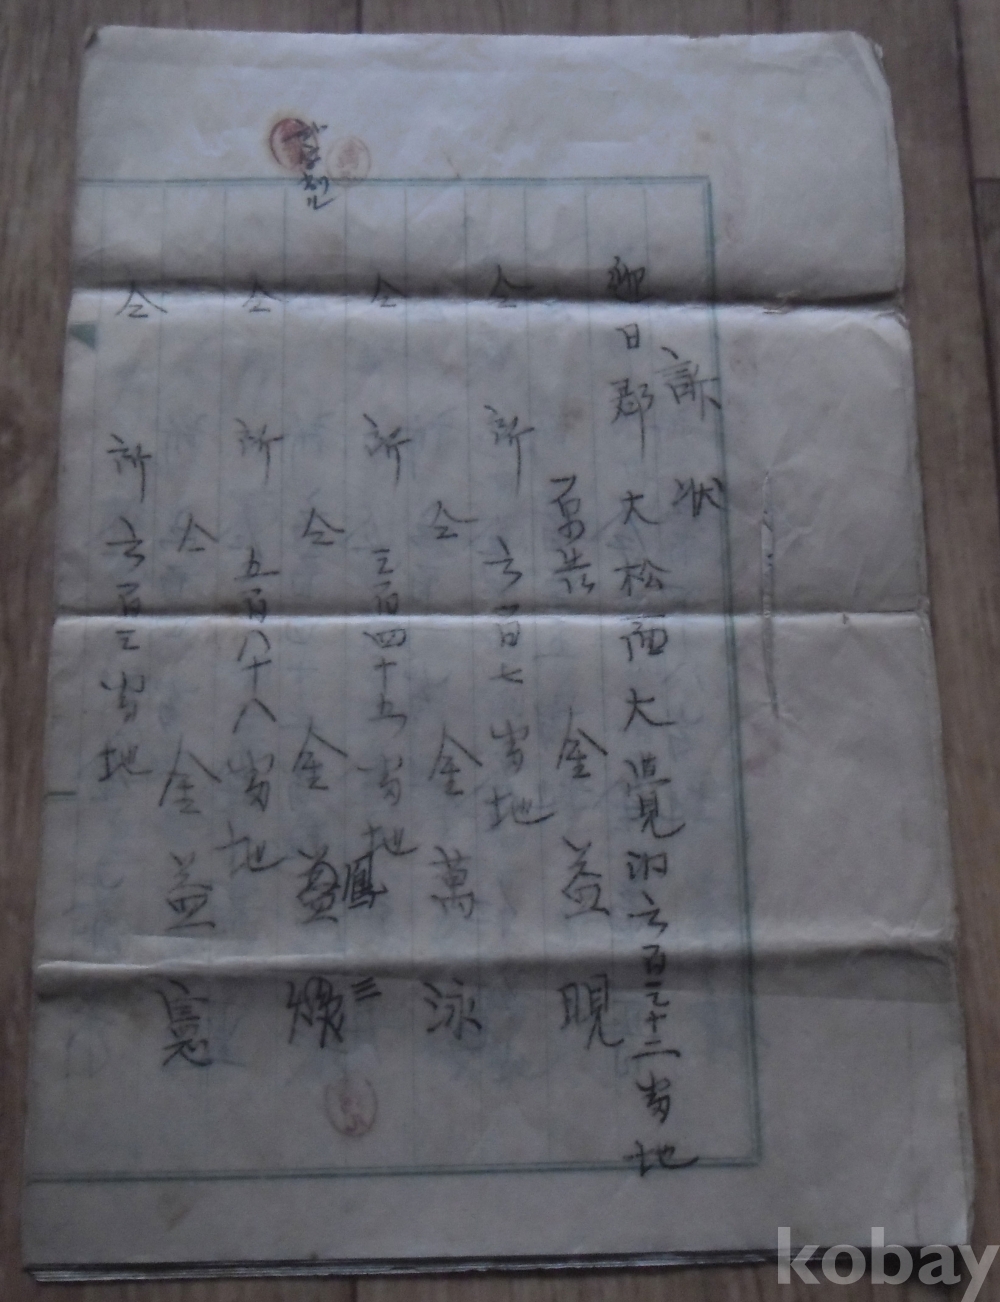 訴状
迎日郡大松面大覺洞六百三十二番地
原告 金益晛
仝所六百七番地
仝 金萬泳
仝所三百四十五番地
鳳三
仝 金益煥
仝所五百八十八番地
仝 金益憲
仝所六百三番地
kobay